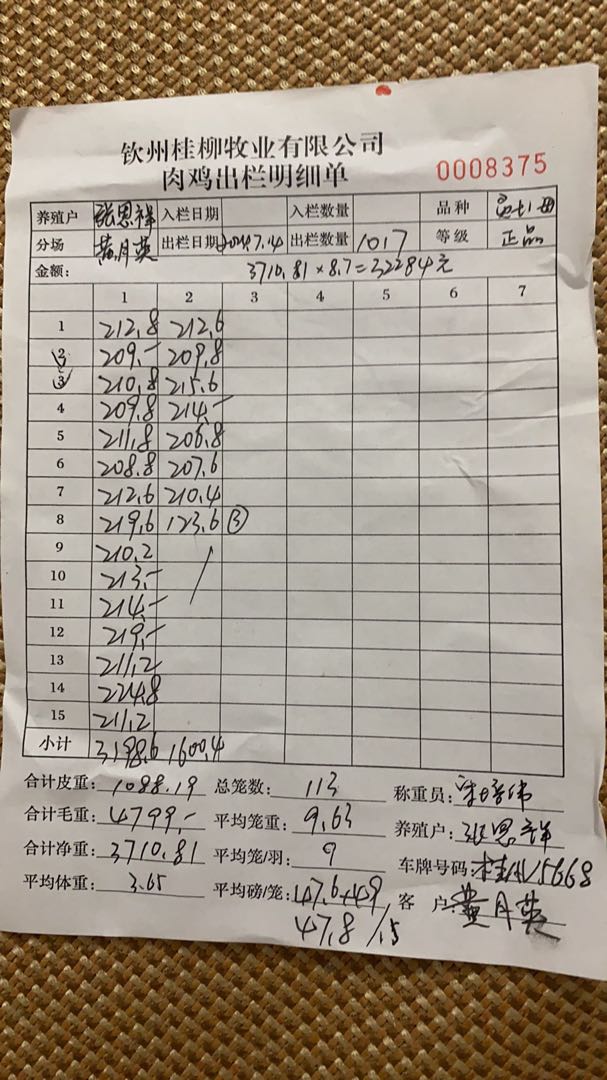 钦州桂柳牧业有限公司
肉鸡出栏明细单 0008375
养殖户 张恩祥 入栏日期 入栏数量 品种
分场 黄月英 出栏日期 2024.7.14 出栏数量 1017 等级 正品
金额: 3710.81×8.7=32284元
1 2 3 4 5 6 7
1 212.8 212.6
2 209.- 209.8
3 210.8 215.6
4 209.8 214.-
5 211.8 206.8
6 208.8 207.6
7 212.6 210.4
8 219.6 123.6 ③
9 210.2
10 213.-
11 214.-
12 219.-
13 211.2
14 224.8
15 211.2
小计 3198.6 1600.4
合计皮重: 1088.19 总笼数: 113 称重员:
合计毛重: 4799.- 平均笼重: 9.63 养殖户: 张恩祥
合计净重: 3710.81 平均笼/羽: 9 车牌号码:
平均体重: 3.65 平均磅/笼: 47.6+49 客户: 黄月英
47.8/.5